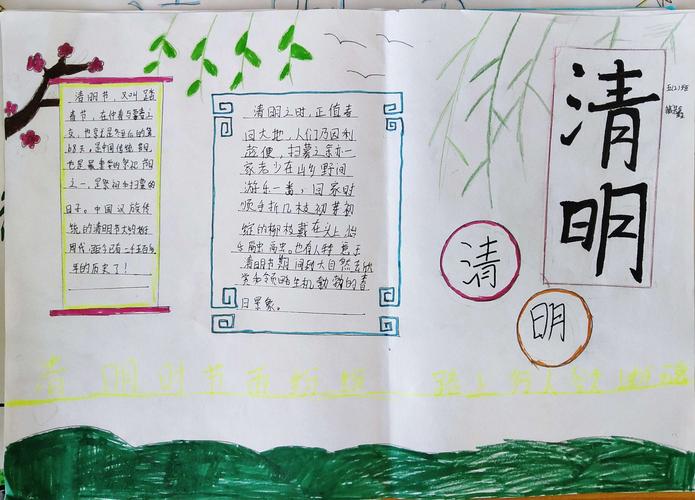 清明节,又叫踏
春节,在仲春与暮春之
交,也就是冬至后的第
108天。是中国传统节日,
也是最重要的祭祀节日
之一,是祭祖和扫墓的
日子。中国汉族传
统的清明节大约始于
周代,距今已有二千五百多
年的历史了!
清明之时,正值春
回大地,人们乃因利
趁便,扫墓之余亦一
家老少在山乡野间
游乐一番,回家时
顺手折几枝初芽初
绽的柳枝戴在头上,怡
乐融融。也有人特意于
清明节期间到大自然去欣
赏和领略生机勃勃的春
日景象。
清明
五(2)班
清
明
清明时节雨纷纷 路上行人欲断魂